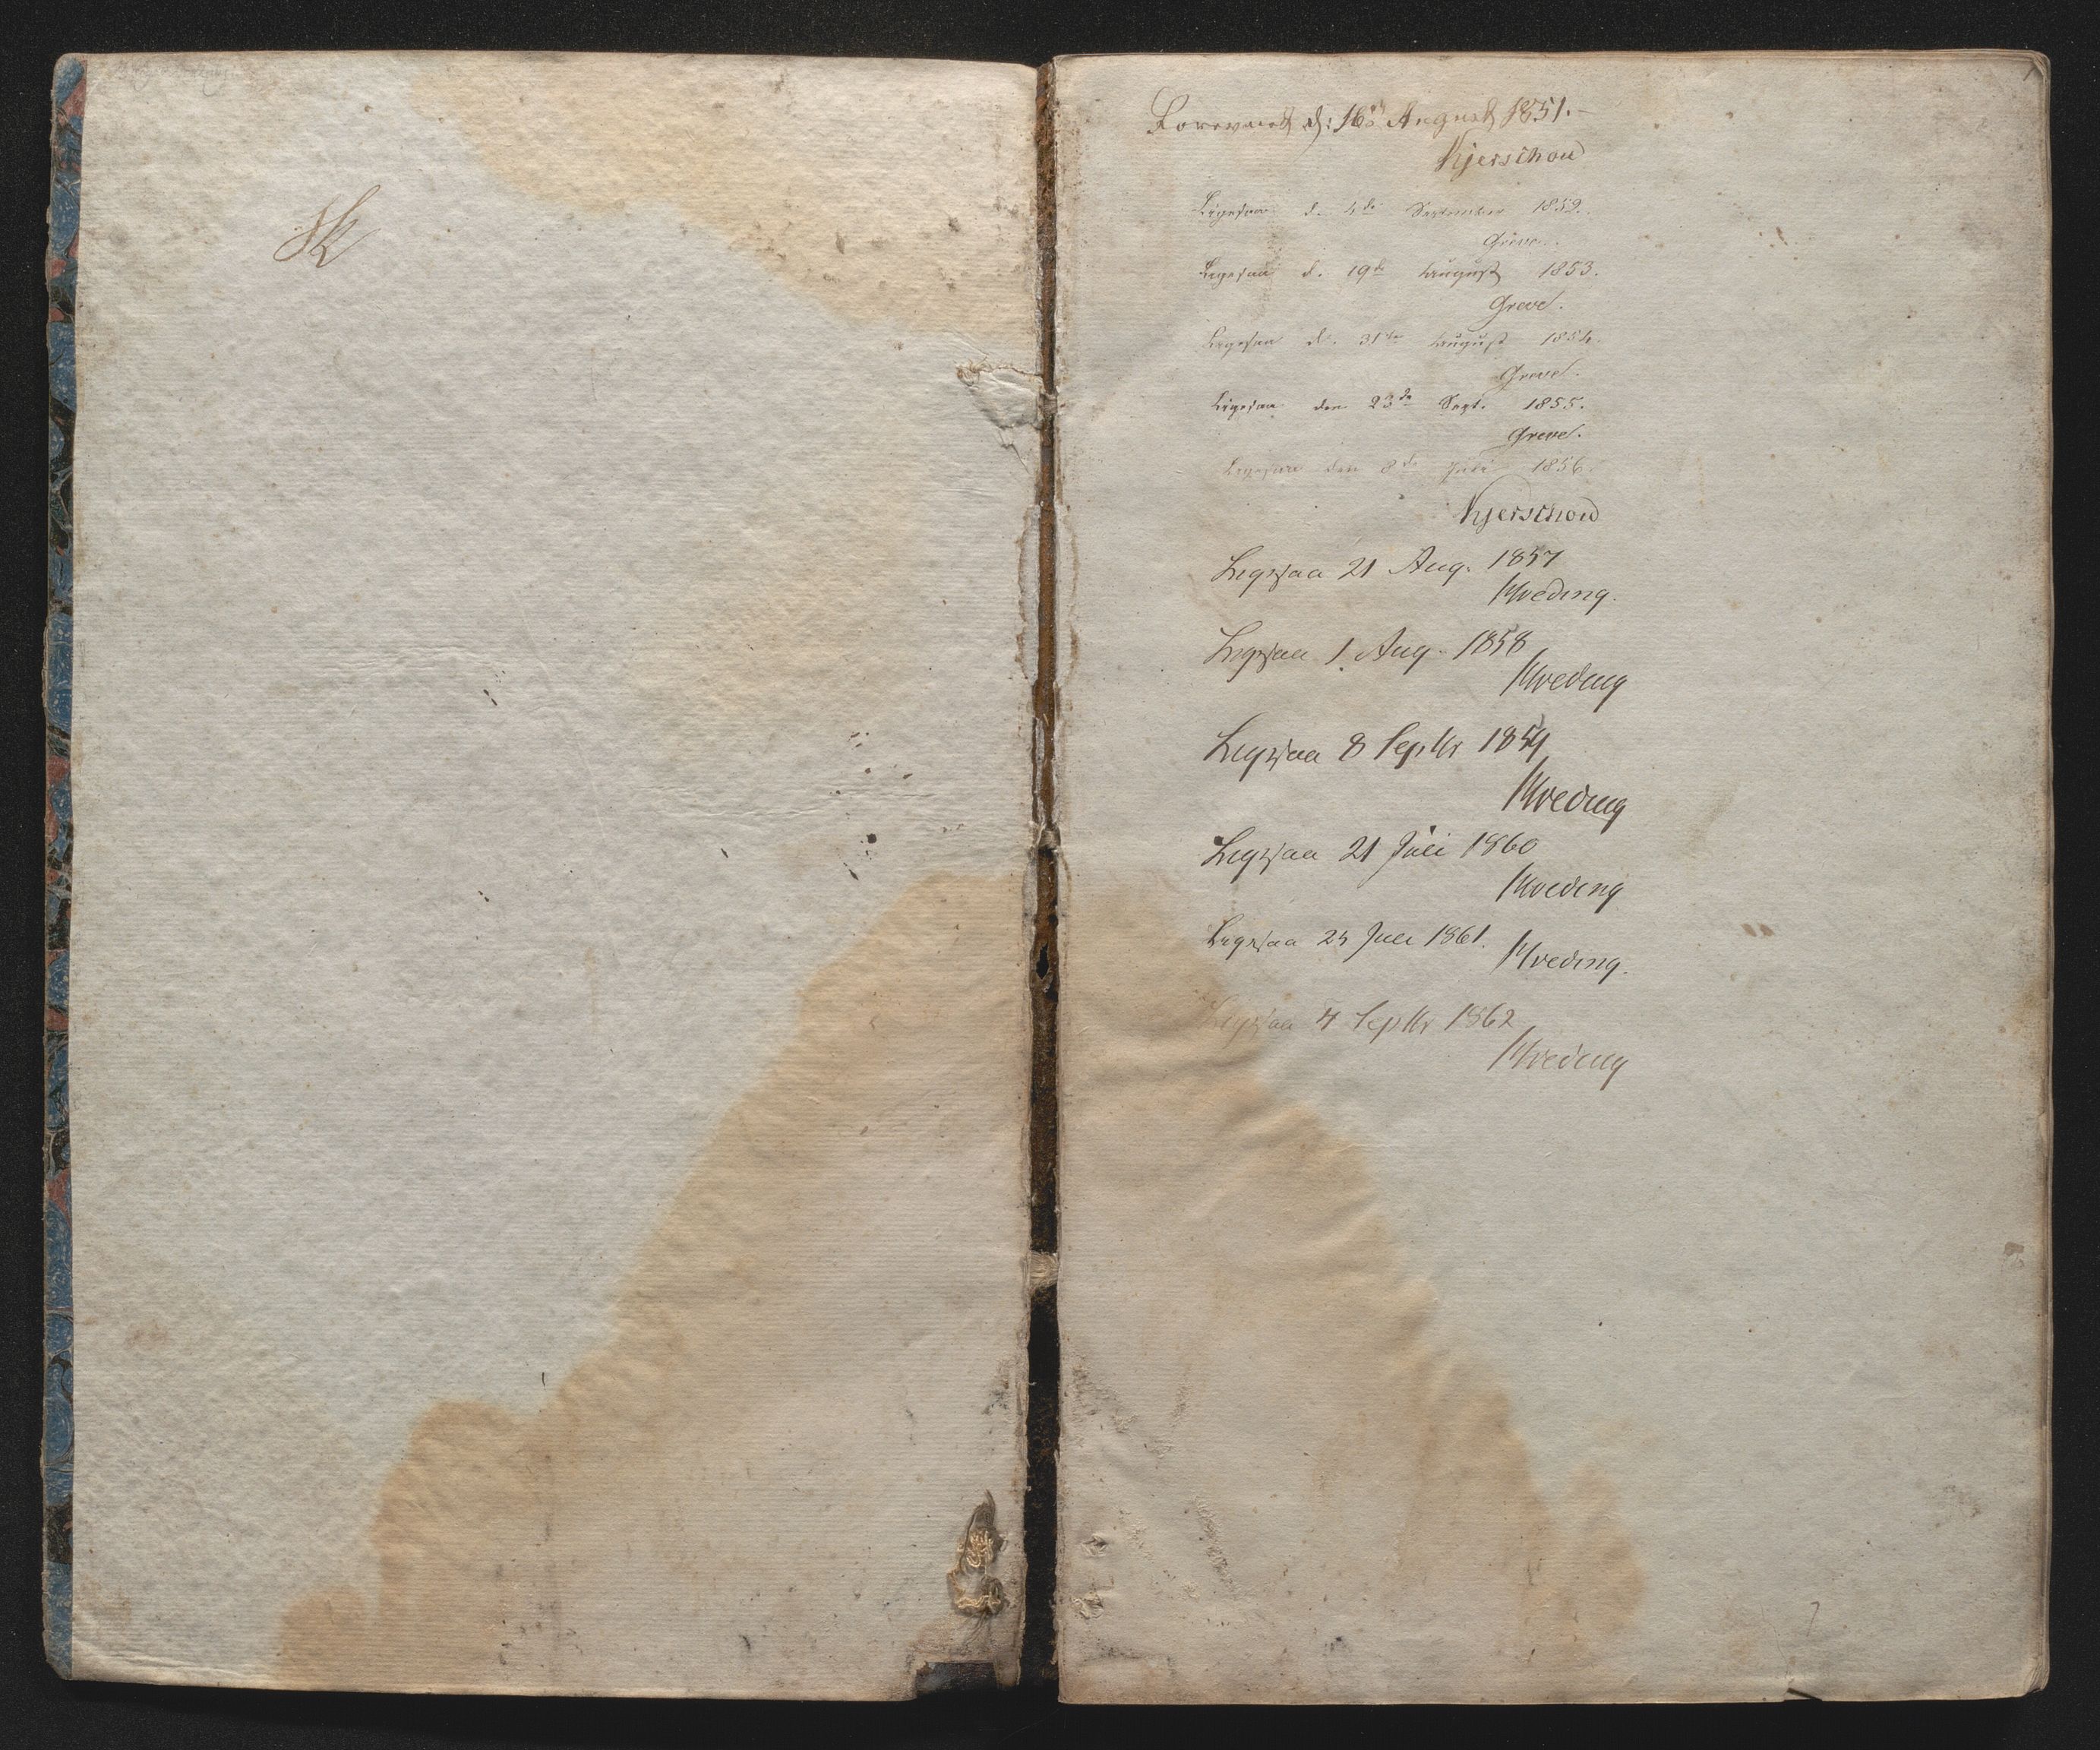 Forevist d: 16de August 1851.-
Kjerschow
Ligesaa d. 4de September 1852.
Greve.
Ligesaa d. 19de August 1853.
Greve.
Ligesaa d. 31te August 1854.
Greve.
Ligesaa den 23de Sept. 1855.
Greve.
Ligesaa den 8de Juli 1856.
Kjerschow
Ligesaa 21 Aug. 1857
Hveding.
Ligesaa 1. Aug. 1858
Hveding
Ligesaa 8 Septbr 1859
Hveding
Ligesaa 21 Juli 1860
Hveding
Ligesaa 25 Juli 1861.
Hveding.
Ligesaa 4 Septbr 1862
Hveding